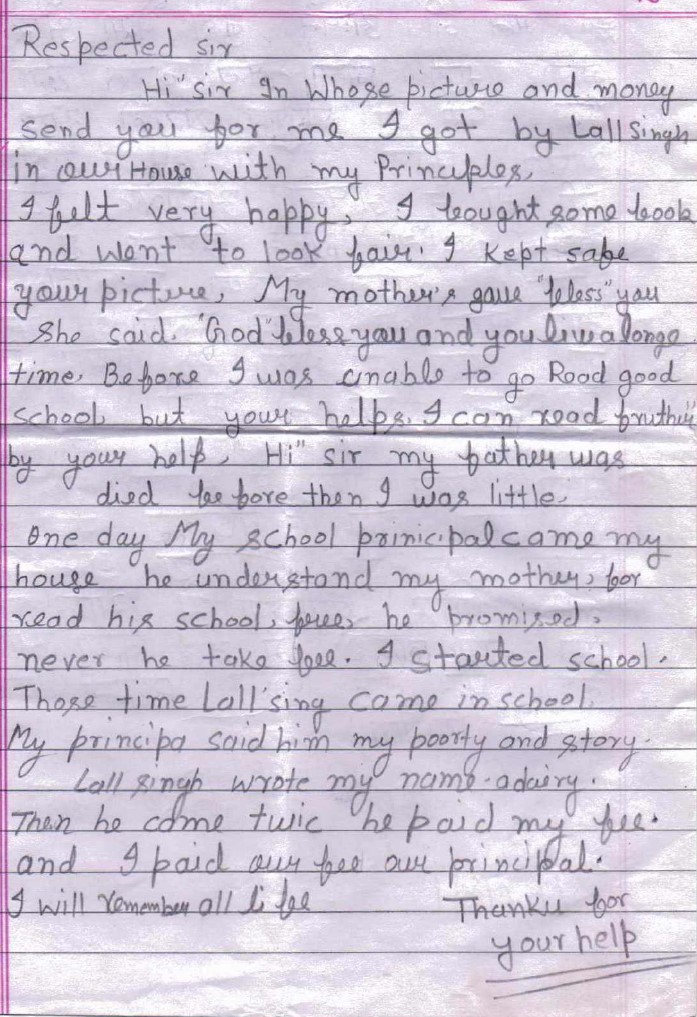 Respected sir
Hi" sir In Whose picture and money
send you for me I got by Lall Singh
in our House with my Principles,
I felt very happy, I bought some book
and went to look fair. I kept safe
your picture, My mother's gave "bless" you
She said. "God" bless you and you live a longe
time, Before I was unable to go Rood good
school, but your helps, I can read fruther
by your help, Hi" sir my father was
died be fore then I was little.
One day My school prinicipal came my
house he understand my mother, for
read his school, free, he promised,
never he take fee. I started school.
Those time Lall'sing came in school.
My principa said him my poorty and story.
Lall singh wrote my name adairy.
Then he come twic he paid my fee.
and I paid our fee our principal.
I will remember all li fee
Thanku for
your help